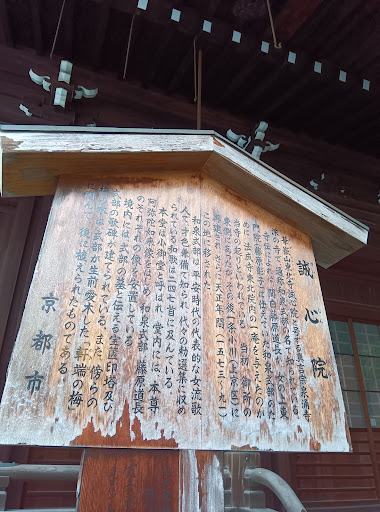 誠心院
華嶽山東北寺誠心院と号する真言宗泉涌寺
派の寺で、通称和泉式部の名で知られる。
寺伝によれば、関白藤原道長が、娘の上東
門院（藤原彰子）に仕えた和泉式部のた
めに、法成寺東北院内の一庵を与えたのが
当寺の起こりとされている。当初、御所の
東側にあったが、その後一条小川（上京区）に
再建され、さらに天正年間（一五七三〜九一）に
この地に移された。
和泉式部は平安時代の代表的な女流歌
人で才色兼備で知られ、代々の勅選集に収め
られている和歌は二四七首に及んでいる。
本堂は小御堂と呼ばれ、堂内には、本尊
阿弥陀如来像をはじめ、和泉式部、藤原道長
のそれぞれの像を安置している。
境内には、式部の墓と伝える宝篋印塔及び
式部の歌碑が建てられている。また、傍らの
梅の木は、式部が生前愛木した「軒端の梅」
に因んで、後に植えられたものである。
京都市